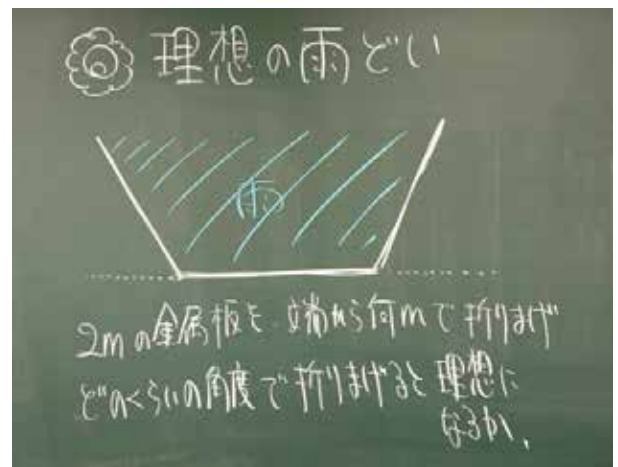 理想の雨どい
雨
2mの金属板を、端から何mで折りまげ
どのくらいの角度で折りまげると理想に
なるか。